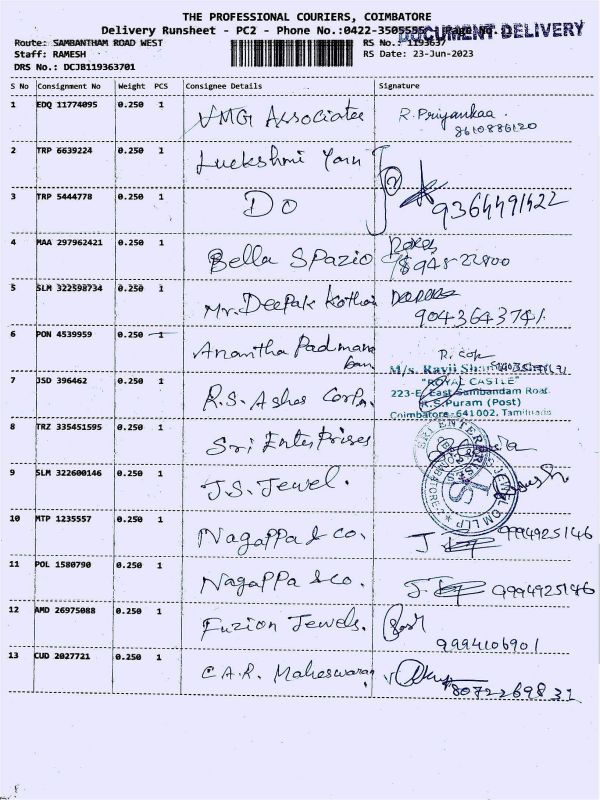 THE PROFESSIONAL COURIERS, COIMBATORE
Delivery Runsheet - PC2 - Phone No.:0422-3505555
DOCUMENT DELIVERY
Route: SAMBANTHAM ROAD WEST
RS No.: 1193637
Staff: RAMESH
RS Date: 23-Jun-2023
DRS No.: DCJB119363701
S No Consignment No Weight PCS Consignee Details Signature
1 EDQ 11774095 0.250 1 VMG Associates R. Priyankaa.
8610886120
2 TRP 6639224 0.250 1 Luckshmi Yarn
3 TRP 5444778 0.250 1 Do 9364491422
4 MAA 297962421 0.250 1 Bella Spazio
5 SLM 322598734 0.250 1 Mr. Deepak Kothari
9043643741
6 PON 4539959 0.250 1 Anantha Padmana
ban
M/s. Ravji
"ROYAL CASTLE"
7 JSD 396462 0.250 1 R.S. Ashos Corpa.
223-E, East Sambandam Road
R.S.Puram (Post)
Coimbatore-641002, Tamilnadu
8 TRZ 335451595 0.250 1 Sri Enterprises
SRI ENTERPRISES
9 SLM 322600146 0.250 1 J.S. Jewel.
10 MTP 1235557 0.250 1 Nagappa & co. J. 9994925146
11 POL 1580790 0.250 1 Nagappa & co. J. 9994925146
12 AMD 26975088 0.250 1 Fuzion Jewels.
9994106901
13 CUD 2027721 0.250 1 C.A.R. Maheswaran
8072269831